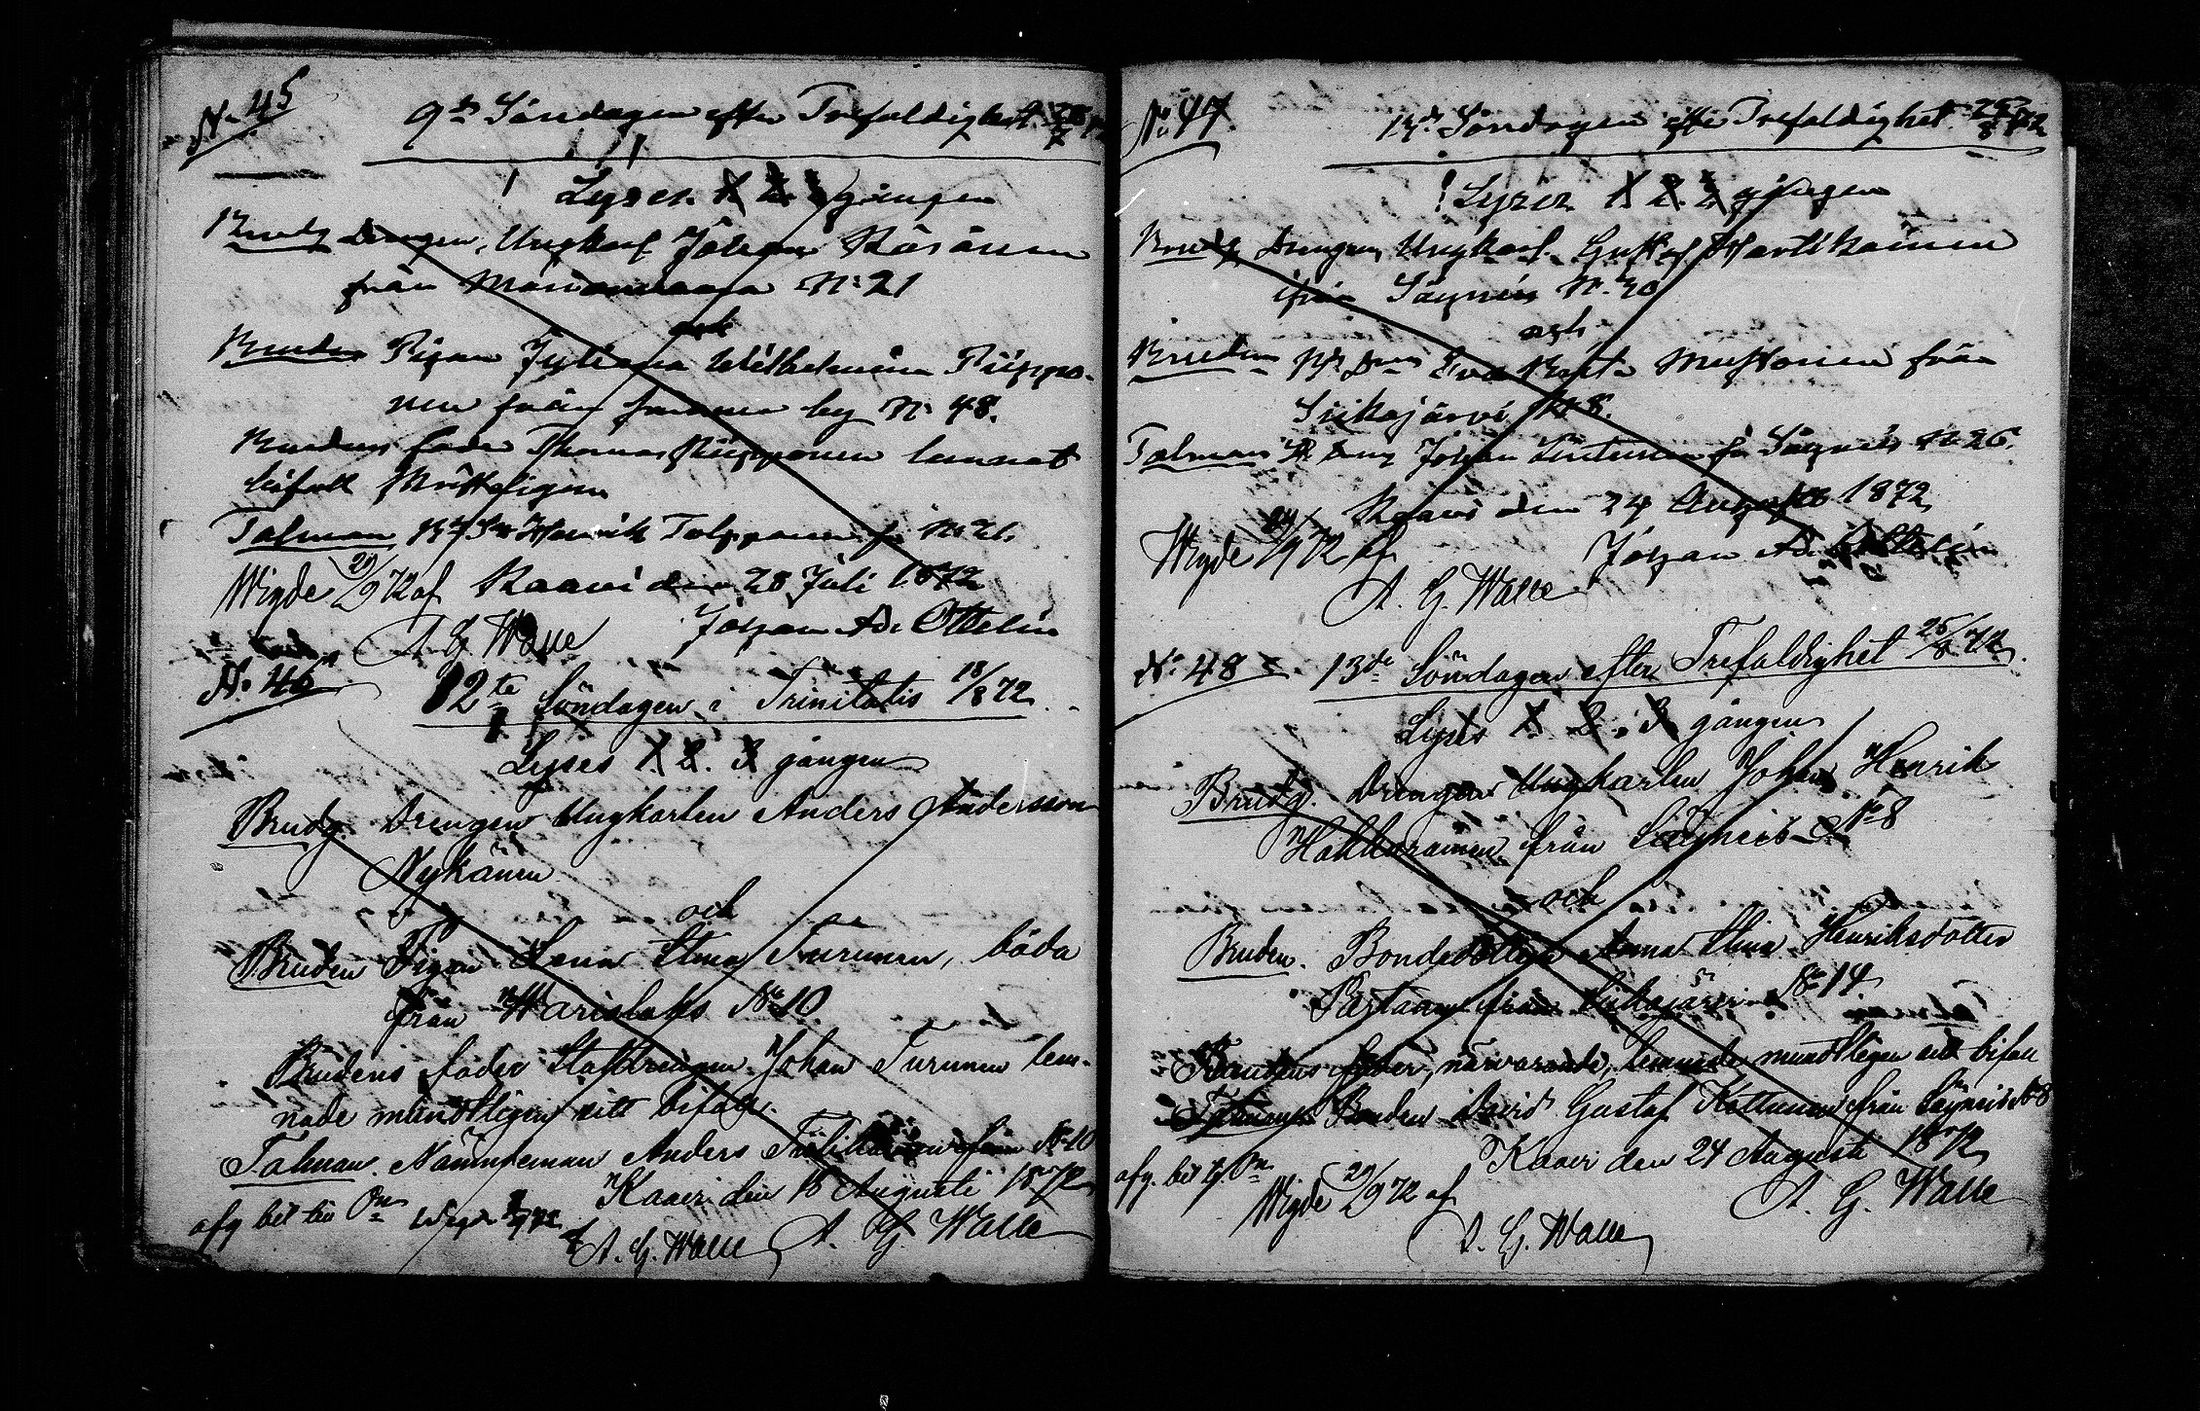 N:o 45
9de Söndagen efter Trefaldighet 28/7
Lyses 1 2 3 gången
Brudg Drengen, Ungkarl Johan Räsänen
från Marianvaara N: 21
och
Bruden Pigan Juliana Wilhelmina Piippo-
nen från by N: 48.
Brudens fader Thomas Piipponen lemnat
bifall skriftligen
Talman Henrik Tolppanen fr N: 21.
Wigde 29/9 72 af Kaavi den 28 Juli 1872
A. G. Walle Johan Ad. Ottelin
N:o 46
12te Söndagen i Trinitatis 18/8 72
Lyses 1. 2. 3 gången
Brudg. Drengen Ungkarlen Anders Andersson
Nykänen
och
Bruden Pigan Lena Stina Turunen, båda
från Warislaks No 10.
Brudens fader Statdrengen Johan Turunen lem-
nade mundtligen sitt bifall.
Talman. Nämndeman Anders från No 10
Kaavi den 18 Augusti 1872
afg bet Wigde 72 af
A. G. Walle A. G. Walle
No 47.
13de Söndagen efter Trefaldighet 25/8 72
Lyses 1 2 3 gången
Brudg Drengen Ungkarl Gustaf Martikainen
ifrån Säyneis N. 30
och
Bruden Eva Brita Mustonen från
Siikajärvi N 8.
Talman Johan Lintunen fr Säyneis N: 26.
Kaavi den 24 Augusti 1872
Wigde 29/9 72 af Johan Ad. Ottelin
A. G. Walle
No 48
13de Söndagen efter Trefaldighet 25/8 72.
Lyses 1. 2. 3 gången
Brudg. Drengen Ungkarlen Johan Henrik
Hakkarainen från Säyneis No 8
och
Bruden. Bondedottern Anna Stina Henriksdotter
Partanen från Siikajärvi No 14
Brudens fader, närvarande, lemnade mundtligen sitt bifall
Talman Bonden David Gustaf Kottunen från Säyneis No 8
Kaavi den 24 Augusti 1872
afg. bet Wigde 29/9 72 af A. G. Walle
A. G. Walle